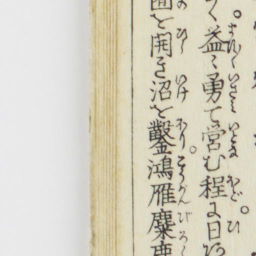 く益〻勇て営む程に日
を開き沼を鑿鴻雁麋鹿